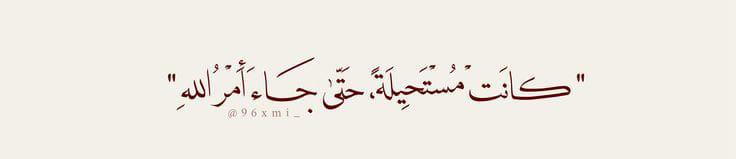 "كَانَتْ مُسْتَحِيلَةً، حَتَّىٰ جَاءَ أَمْرُ اللهِ"
@96xmi_